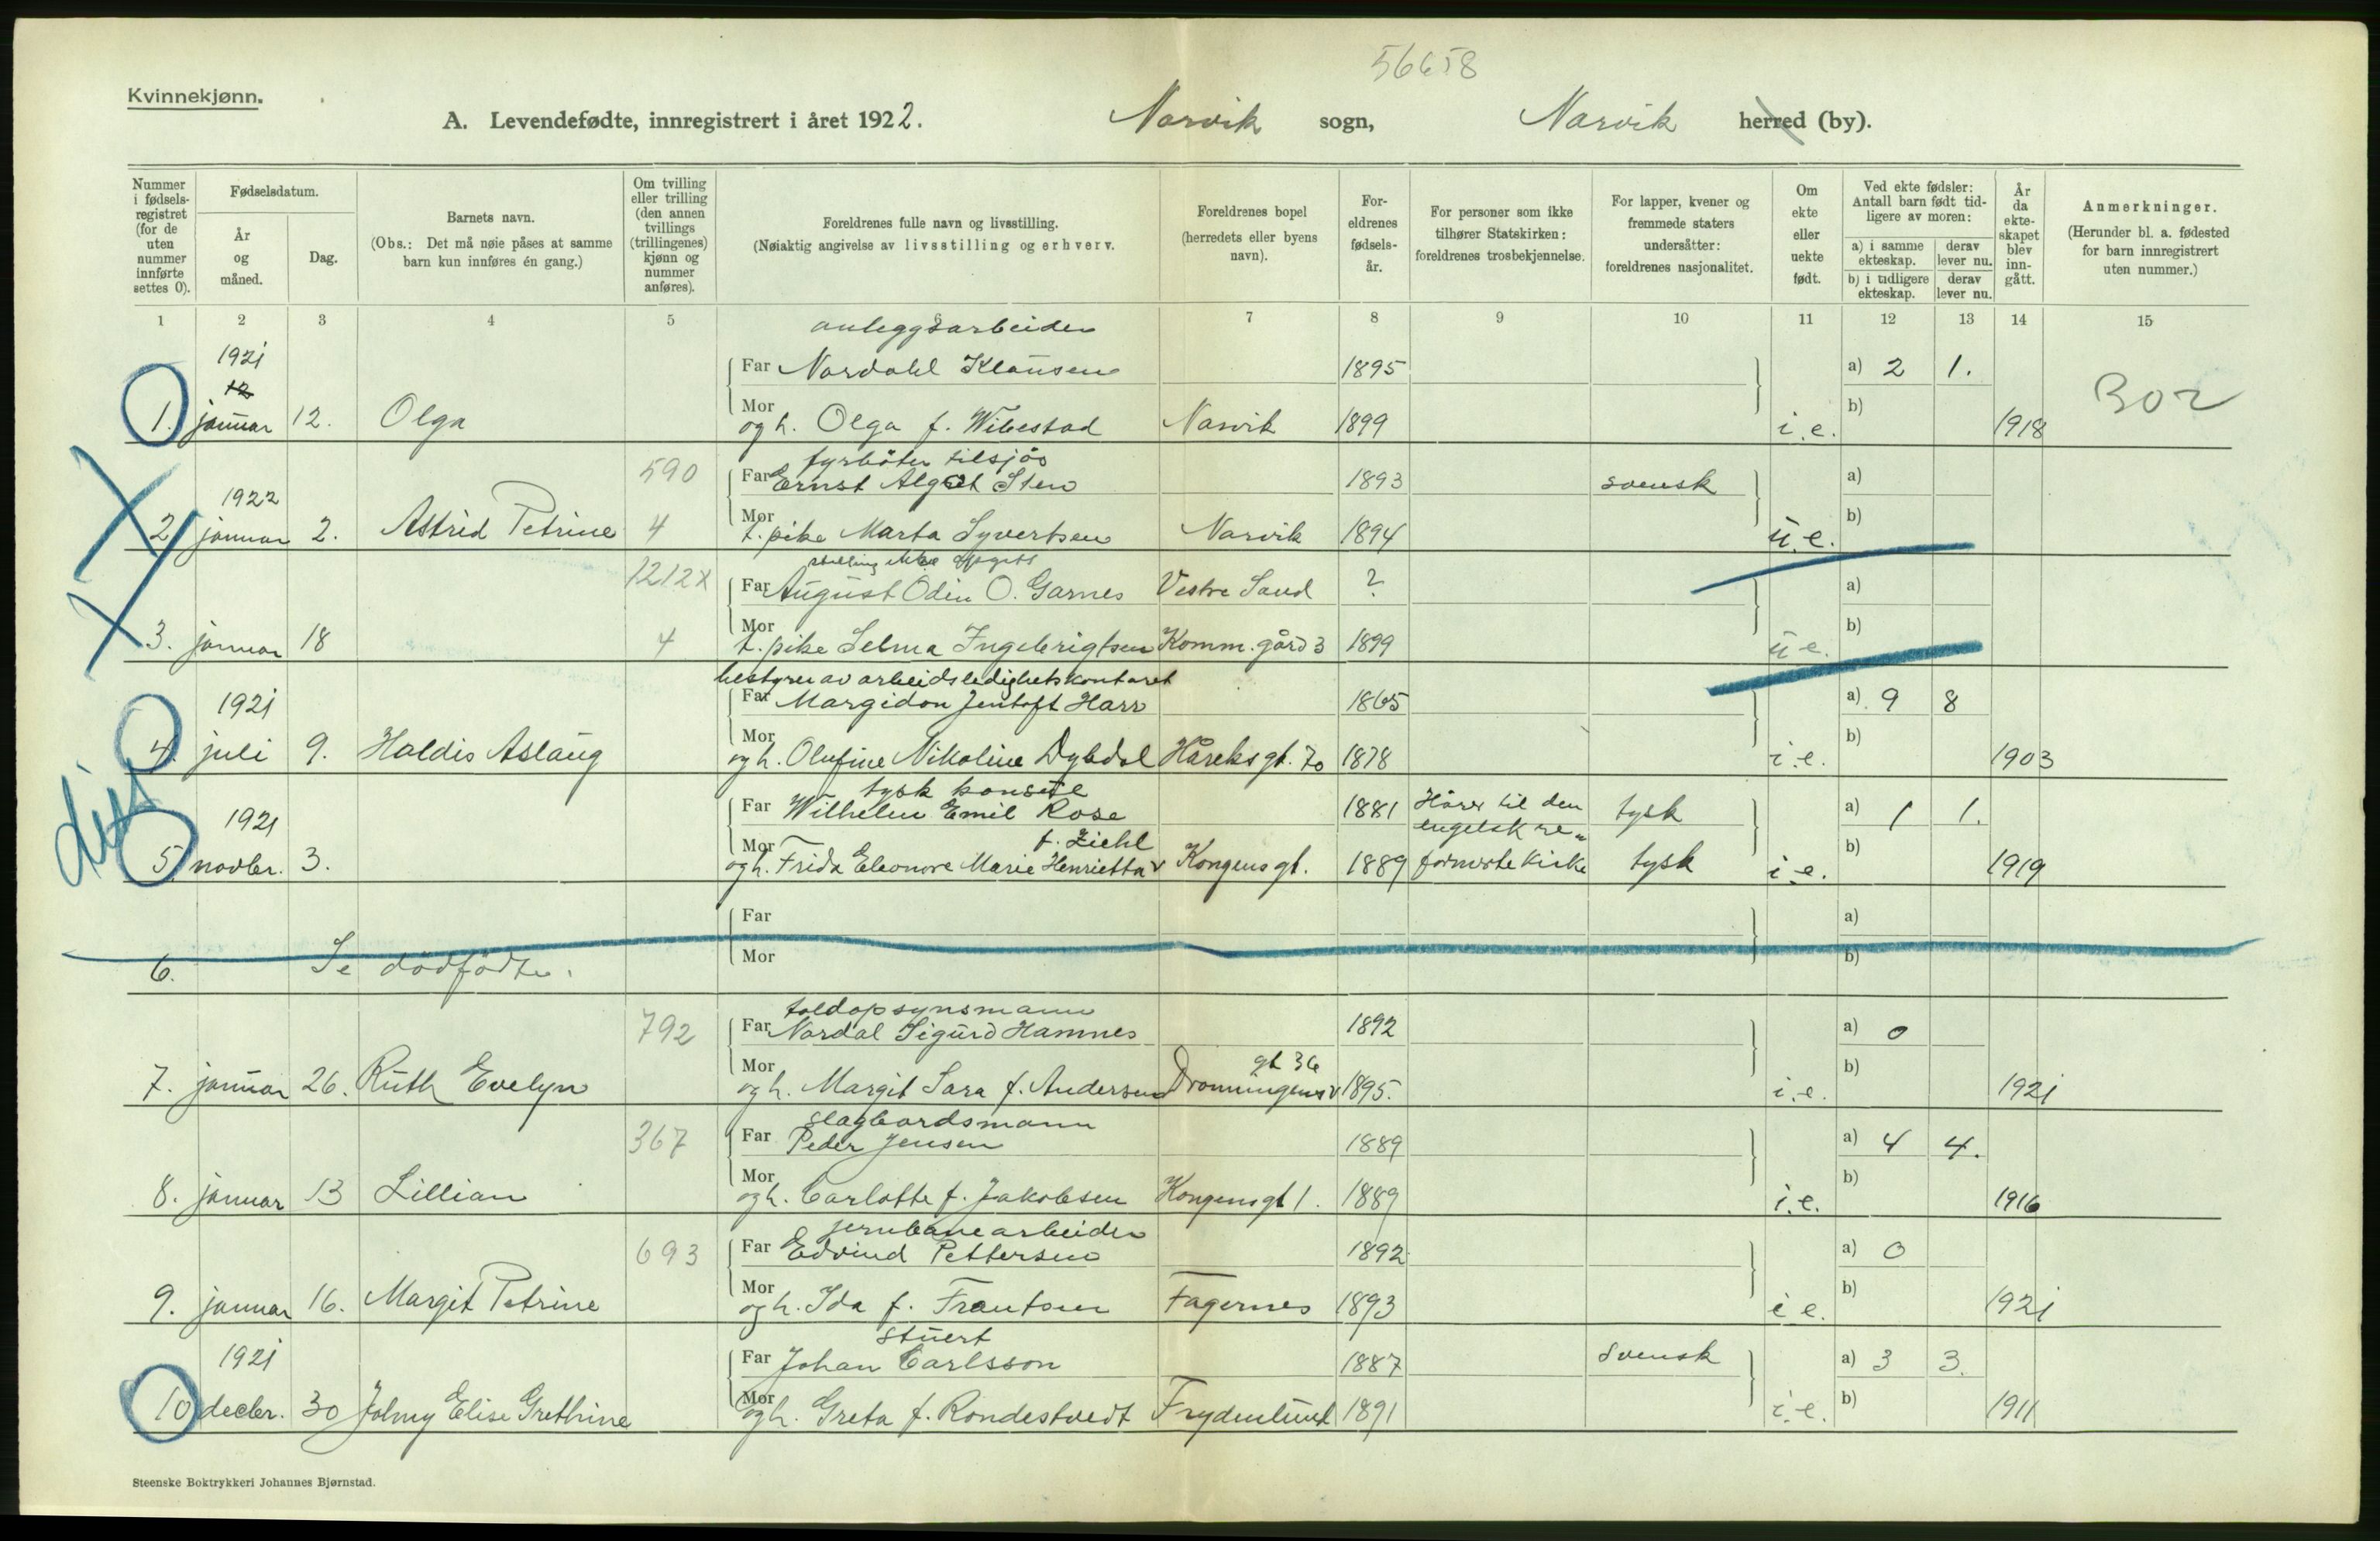 56658
Kvinnekjønn.
A. Levendefødte, innregistrert i året 1922. Narvik sogn, Narvik herred (by).
Nummer i fødsels-registret (for de uten nummer innførte settes 0).
Fødselsdatum.
År og måned.
Dag.
Barnets navn.
(Obs.: Det må nøie påses at samme barn kun innføres én gang.)
Om tvilling eller trilling (den annen tvillings (trillingenes) kjønn og nummer anføres).
Foreldrenes fulle navn og livsstilling.
(Nøiaktig angivelse av livsstilling og erhverv.
Foreldrenes bopel (herredets eller byens navn).
For-eldrenes fødsels-år.
For personer som ikke tilhører Statskirken: foreldrenes trosbekjennelse.
For lapper, kvener og fremmede staters undersåtter: foreldrenes nasjonalitet.
Om ekte eller uekte født.
Ved ekte fødsler: Antall barn født tid-ligere av moren:
a) i samme ekteskap.
derav lever nu.
b) i tidligere ekteskap.
derav lever nu.
År da ekte-skapet blev inn-gått.
Anmerkninger.
(Herunder bl. a. fødested for barn innregistrert uten nummer.)
1 2 3 4 5 6 7 8 9 10 11 12 13 14 15
anleggsarbeider
1921
Far Nordahl Klausen 1895 a) 2 1.
12
302
1. januar 12. Olga Mor og h. Olga f. Wibestad Narvik 1899 i.e. b) 1918
fyrbøter tilsjøs
590 Far Ernst Algot Sten 1893 svensk a)
1922
2. januar 2. Astrid Petrine 4 Mor t. pike Marta Syvertsen Narvik 1894 u.e. b)
stilling ikke opgitt
1212x Far August Odin O. Garnes Vestre Sand ? a)
3. januar 18 4 Mor t. pike Selma Ingebrigtsen Komm. gård 3 1899 u.e. b)
bestyrer av arbeidsledighetskontoret
1921 Far Margidon Jentoft Harr 1865 a) 9 8
4. juli 9. Haldis Aslaug Mor og h. Olufine Nikoline Dybdal Håreksgt. 70 1878 i.e. b) 1903
tysk konsul
1921 Far Wilhelm Emil Rose 1881 Hører til den tysk a) 1 1.
engelsk re-
f. Ziehl
5. novbr. 3. Mor og h. Frida Eleonore Marie Henrietta Kongensgt. 1889 formerte kirke tysk i.e. b) 1919
Far a)
6. Se dødfødte. Mor b)
toldopsynsmann
792 Far Nordal Sigurd Hamnes 1892 a) 0
gt 36
7. januar 26. Ruth Evelyn Mor og h. Margit Sara f. Andersen Dronningens 1895. i.e. b) 1921
slagbordsmann
367 Far Peder Jensen 1889 a) 4 4.
8. januar 13 Lillian Mor og h. Carlotte f. Jakobsen Kongensgt 1. 1889 i.e. b) 1916
jernbanearbeider
693 Far Edvind Pettersen 1892 a) 0
9. januar 16. Margit Petrine Mor og h. Ida f. Frantsen Fagernes 1893 i.e. b) 1921
stuert
1921 Far Johan Carlsson 1887 svensk a) 3 3.
10 decbr. 30 Johny Elise Grethine Mor og h. Greta f. Rondestvedt Frydenlund 1891 i.e. b) 1911
Steenske Boktrykkeri Johannes Bjørnstad.